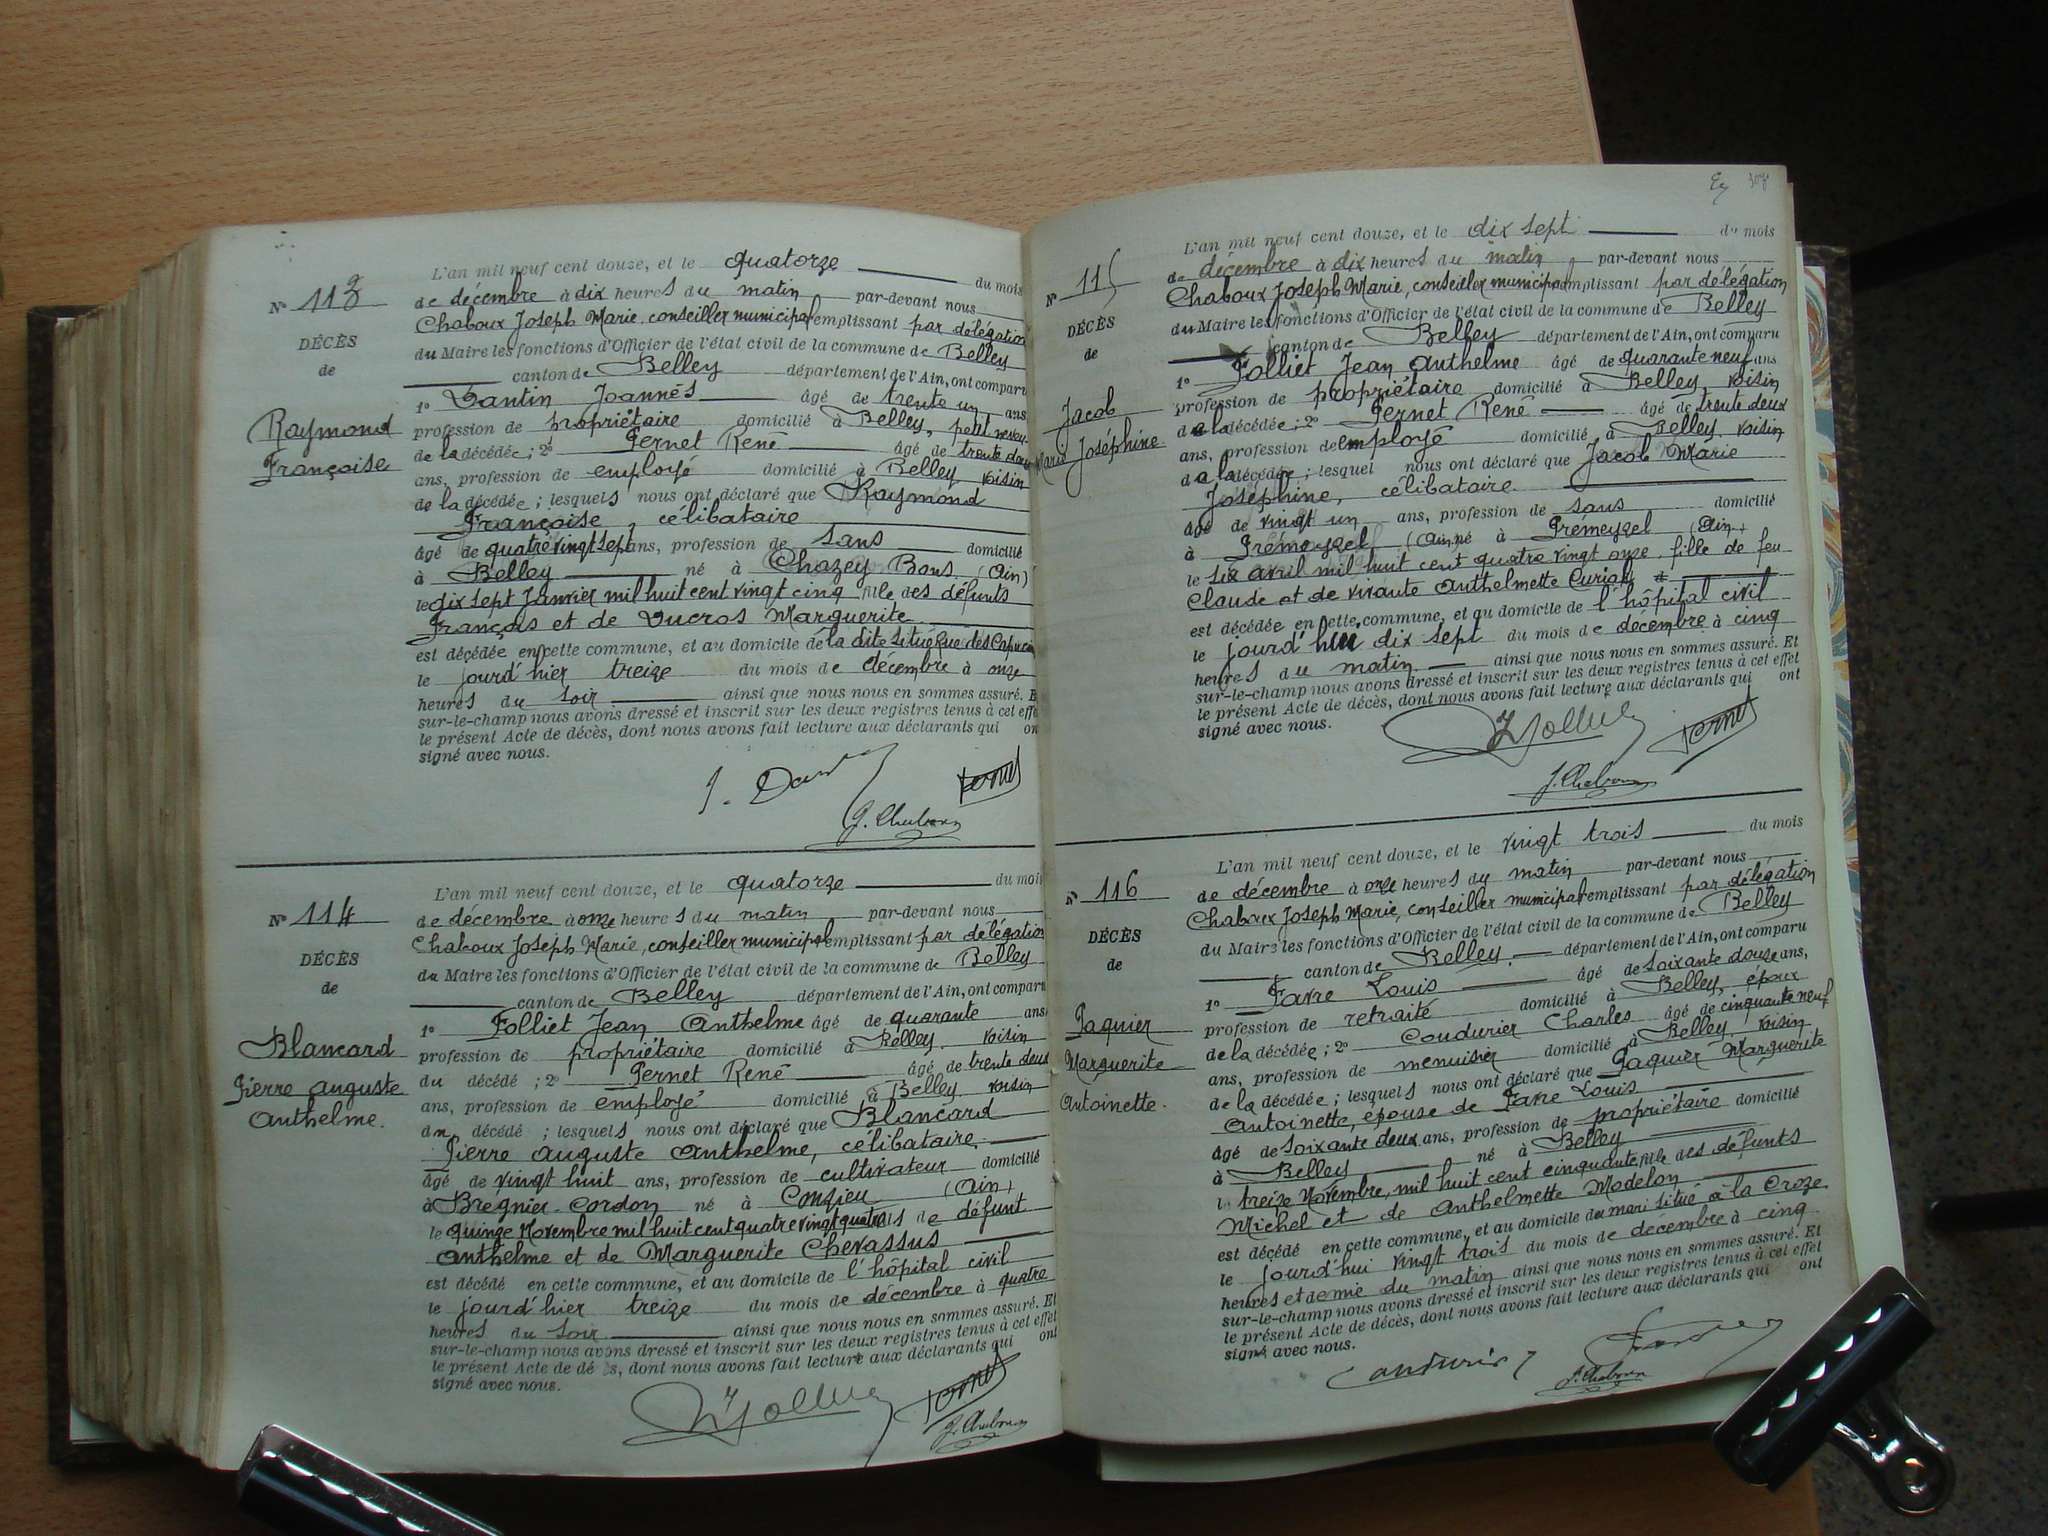 L'an mil neuf cent douze, et le quatorze du mois
Nº 113
de décembre à dix heures du matin par-devant nous
Chaboux Joseph Marie, conseiller municipal remplissant par délégation
DÉCÈS
du Maire les fonctions d'Officier de l'état civil de la commune de Belley
de
canton de Belley département de l'Ain, ont comparu
1º Dantin Joannès âgé de trente un ans
Raymond
profession de propriétaire domicilié à Belley, petit neveu
Françoise
de la décédée ; 2º Pernet René âgé de trente deux
ans, profession de employé domicilié à Belley voisin
de la décédée ; lesquels nous ont déclaré que Raymond
Françoise, célibataire
âgé de quatre vingt sept ans, profession de sans domicilié
à Belley né à Chazey Bons (Ain)
le dix sept Janvier mil huit cent vingt cinq fille des défunts
François et de Ducros Marguerite
est décédée en cette commune, et au domicile de la dite situé Rue des Capucins
le jourd'hier treize du mois de décembre à onze
heures du soir ainsi que nous nous en sommes assuré. Et
sur-le-champ nous avons dressé et inscrit sur les deux registres tenus à cet effet
le présent Acte de décès, dont nous avons fait lecture aux déclarants qui ont
signé avec nous.
Pernet
J. Chaboux
L'an mil neuf cent douze, et le quatorze du mois
Nº 114
de décembre à onze heures du matin par-devant nous
Chaboux Joseph Marie, conseiller municipal remplissant par délégation
DÉCÈS
du Maire les fonctions d'Officier de l'état civil de la commune de Belley
de
canton de Belley département de l'Ain, ont comparu
1º Folliet Jean Anthelme âgé de quarante ans
Blancard
profession de propriétaire domicilié à Belley. voisin
Pierre Auguste
du décédé ; 2º Pernet René âgé de trente deux
Anthelme.
ans, profession de employé domicilié à Belley voisin
du décédé ; lesquels nous ont déclaré que Blancard
Pierre Auguste Anthelme, célibataire
âgé de vingt huit ans, profession de cultivateur domicilié
à Brégnier-Cordon né à Conzieu (Ain)
le quinze Novembre mil huit cent quatre vingt quatre fils de défunt
Anthelme et de Marguerite Chevassus
est décédé en cette commune, et au domicile de l'hôpital civil
le jourd'hier treize du mois de décembre à quatre
heures du soir ainsi que nous nous en sommes assuré. Et
sur-le-champ nous avons dressé et inscrit sur les deux registres tenus à cet effet
le présent Acte de décès, dont nous avons fait lecture aux déclarants qui ont
signé avec nous.
Folliet Pernet
J. Chaboux
L'an mil neuf cent douze, et le dix sept du mois
Nº 115
de décembre à dix heures du matin par-devant nous
Chaboux Joseph Marie, conseiller municipal remplissant par délégation
DÉCÈS
du Maire les fonctions d'Officier de l'état civil de la commune de Belley
de
canton de Belley département de l'Ain, ont comparu
1º Folliet Jean Anthelme âgé de quarante neuf ans
Jacob
profession de propriétaire domicilié à Belley, voisin
Marie Joséphine
de la décédée ; 2º Pernet René âgé de trente deux
ans, profession de employé domicilié à Belley, voisin
de la décédée ; lesquels nous ont déclaré que Jacob Marie
Joséphine, célibataire
âgé de vingt un ans, profession de sans domicilié
à Prémeyzel (Ain) né à Prémeyzel (Ain)
le six avril mil huit cent quatre vingt onze. fille de feu
Claude et de vivante Anthelmette Curial
est décédée en cette commune, et au domicile de l'hôpital civil
le jourd'hui dix sept du mois de décembre à cinq
heures du matin ainsi que nous nous en sommes assuré. Et
sur-le-champ nous avons dressé et inscrit sur les deux registres tenus à cet effet
le présent Acte de décès, dont nous avons fait lecture aux déclarants qui ont
signé avec nous.
Folliet Pernet
J. Chaboux
L'an mil neuf cent douze, et le vingt trois du mois
Nº 116
de décembre à onze heures du matin par-devant nous
Chaboux Joseph Marie, conseiller municipal remplissant par délégation
DÉCÈS
du Maire les fonctions d'Officier de l'état civil de la commune de Belley
de
canton de Belley. département de l'Ain, ont comparu
1º Favre Louis âgé de soixante douze ans,
Paquier
profession de retraité domicilié à Belley, époux
Marguerite
de la décédée ; 2º Coudurier Charles âgé de cinquante neuf
Antoinette.
ans, profession de menuisier domicilié à Belley voisin
de la décédée ; lesquels nous ont déclaré que Paquier Marguerite
Antoinette, épouse de Favre Louis
âgé de soixante deux ans, profession de propriétaire domicilié
à Belley né à Belley
le treize Novembre, mil huit cent cinquante fille des défunts
Michel et de Anthelmette Modelon
est décédé en cette commune, et au domicile du mari situé à la Croze
le jourd'hui vingt trois du mois de décembre à cinq
heures et demie du matin ainsi que nous nous en sommes assuré. Et
sur-le-champ nous avons dressé et inscrit sur les deux registres tenus à cet effet
le présent Acte de décès, dont nous avons fait lecture aux déclarants qui ont
signé avec nous.
Coudurier
J. Chaboux